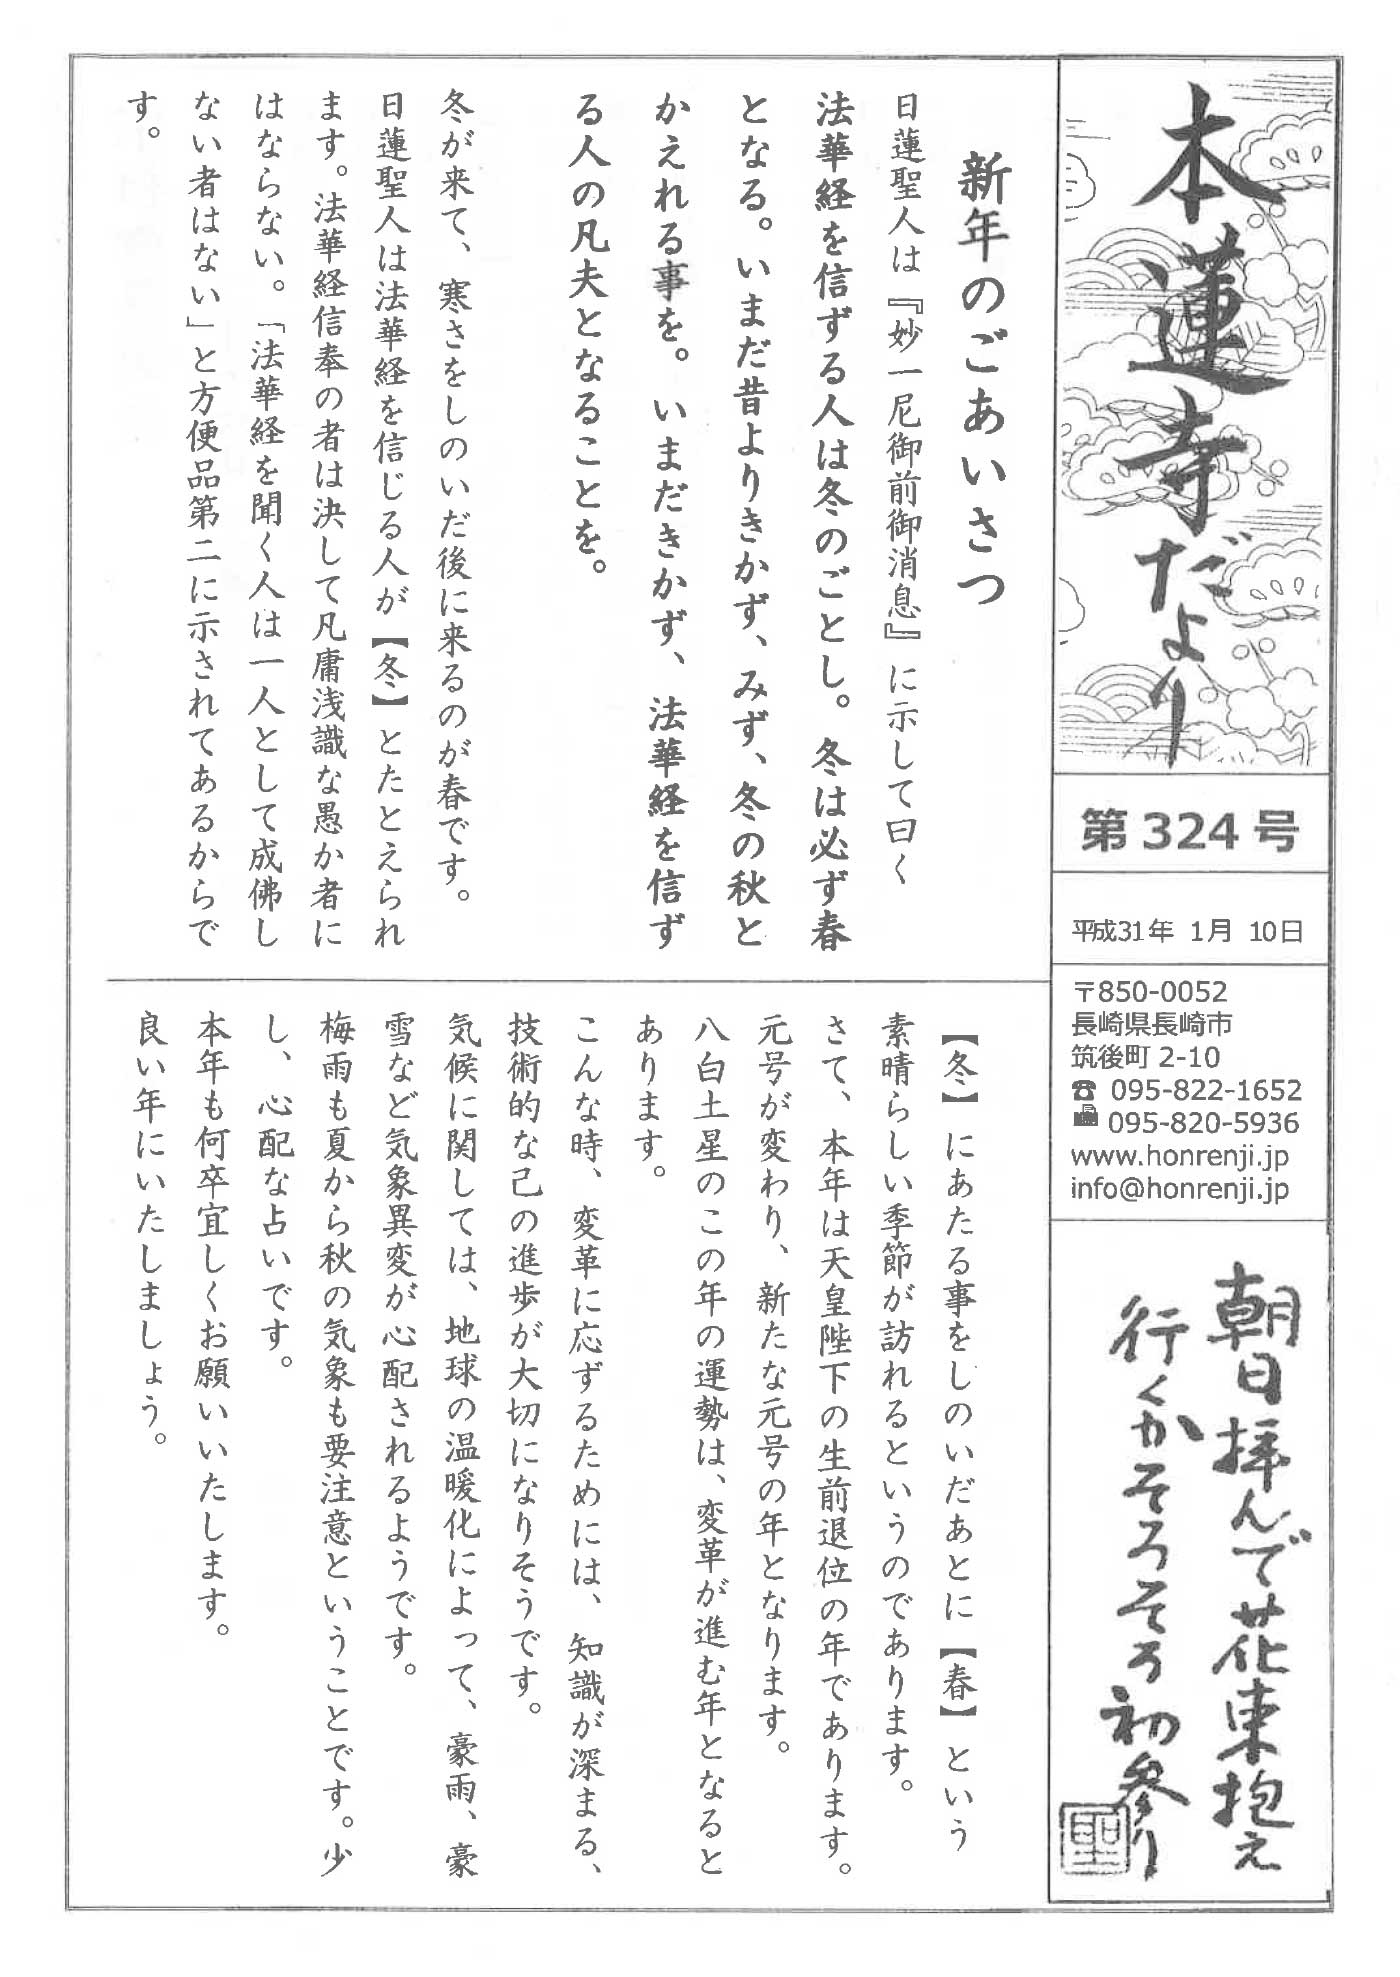 本蓮寺だより
第324号
平成31年 1月 10日
〒850-0052
長崎県長崎市
筑後町 2-10
☎ 095-822-1652
095-820-5936
www.honrenji.jp
info@honrenji.jp
朝日拝んで花束抱え
行くかそろそろ初参り
聖
新年のごあいさつ
日蓮聖人は『妙一尼御前御消息』に示して曰く
法華経を信ずる人は冬のごとし。冬は必ず春
となる。いまだ昔よりきかず、みず、冬の秋と
かえれる事を。いまだきかず、法華経を信ず
る人の凡夫となることを。
冬が来て、寒さをしのいだ後に来るのが春です。
日蓮聖人は法華経を信じる人が【冬】とたとえられ
ます。法華経信奉の者は決して凡庸浅識な愚か者に
はならない。「法華経を聞く人は一人として成佛し
ない者はない」と方便品第二に示されてあるからで
す。
【冬】にあたる事をしのいだあとに【春】という
素晴らしい季節が訪れるというのであります。
さて、本年は天皇陛下の生前退位の年であります。
元号が変わり、新たな元号の年となります。
八白土星のこの年の運勢は、変革が進む年となると
あります。
こんな時、変革に応ずるためには、知識が深まる、
技術的な己の進歩が大切になりそうです。
気候に関しては、地球の温暖化によって、豪雨、豪
雪など気象異変が心配されるようです。
梅雨も夏から秋の気象も要注意ということです。少
し、心配な占いです。
本年も何卒宜しくお願いいたします。
良い年にいたしましょう。